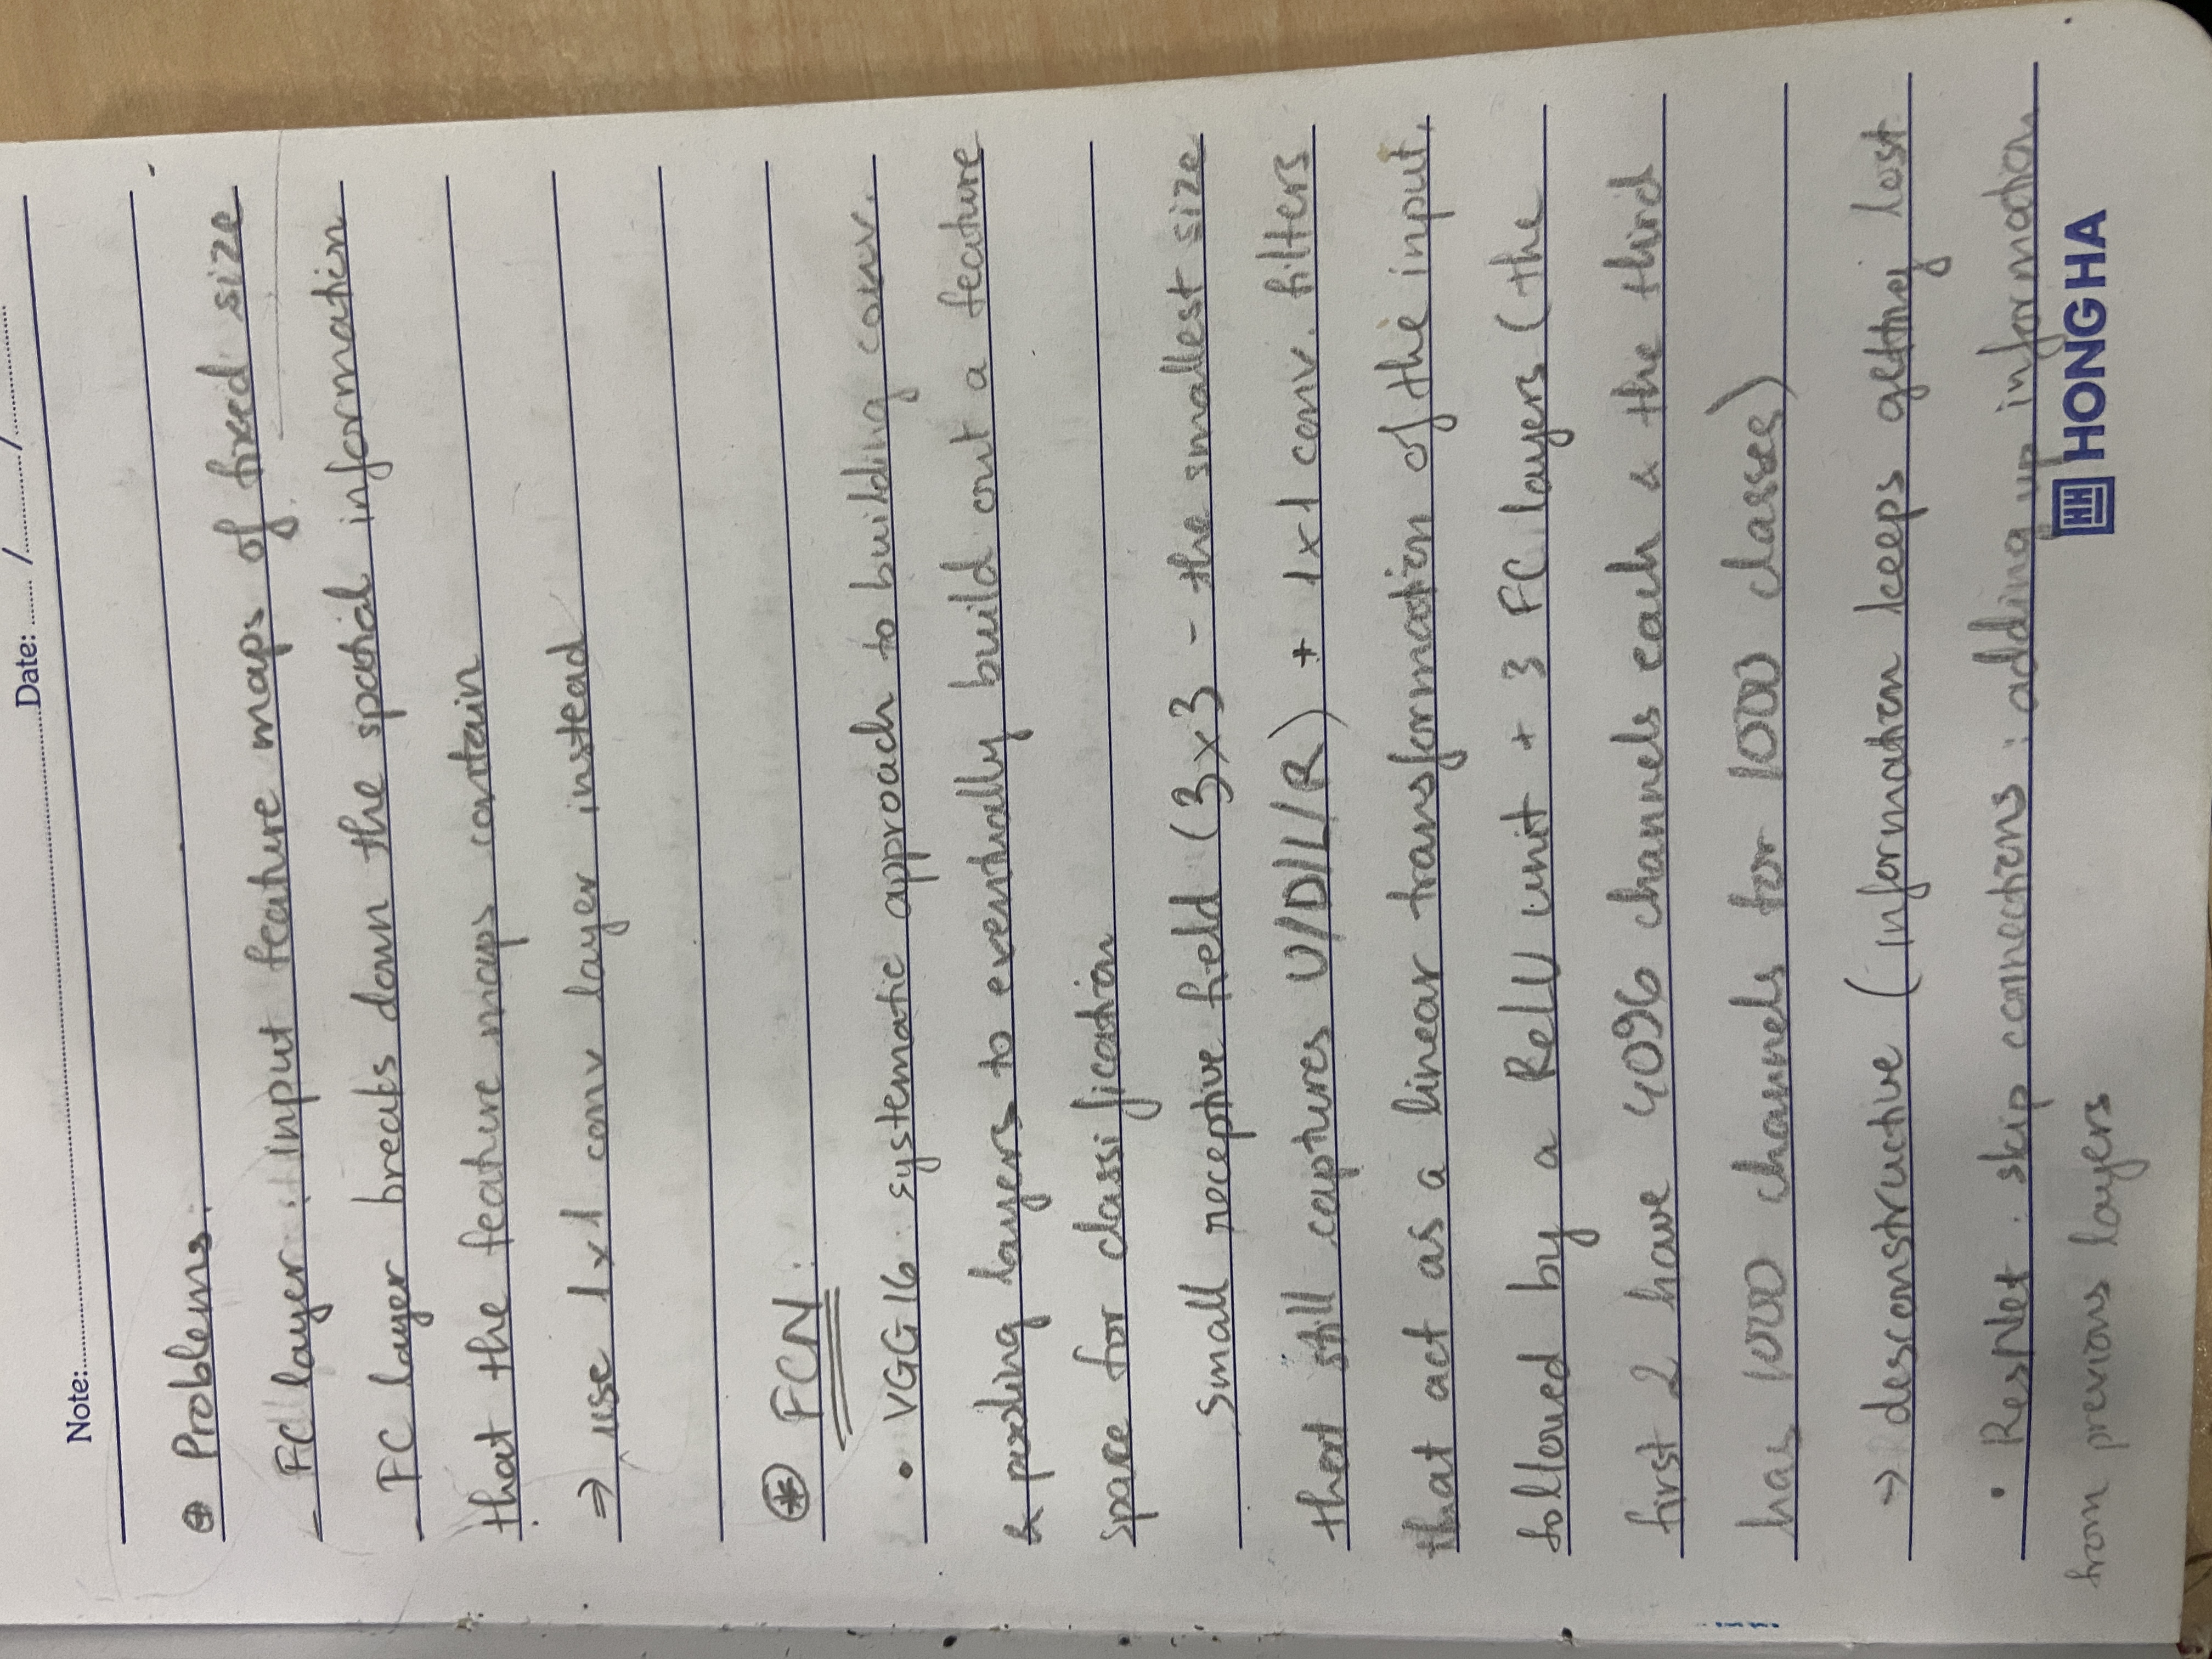 Date: ...... /............/................
Note:................................................
⊕ Problems:
- FC layer : input feature maps of fixed size
- FC layer breaks down the spatial information
that the feature maps contain
⇒ use 1x1 conv layer instead
⊛ FCN :
• VGG16 : systematic approach to building conv.
& pooling layers to eventually build out a feature
space for classification
Small receptive field (3x3 - the smallest size
that still captures U/D/L/R) + 1x1 conv. filters
that act as a linear transformation of the input,
followed by a RelU unit + 3 FC layers (the
first 2 have 4096 channels each & the third
has 1000 channels for 1000 classes)
→ desconstructive (information keeps getting lost
• ResNet : skip connections : adding up information
from previous layers
HH HONG HA